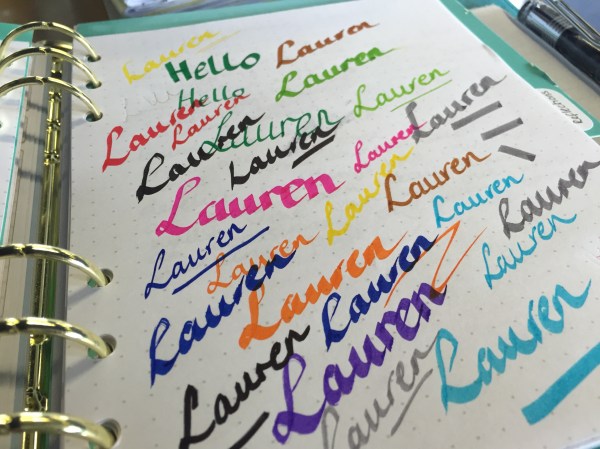 Lauren
Hello Lauren
Hello Lauren
Lauren Lauren
Lauren Lauren Lauren
Lauren Lauren
Lauren Lauren
Lauren Lauren
Lauren Lauren Lauren Lauren
Lauren Lauren Lauren Lauren
Lauren Lauren Lauren Lauren